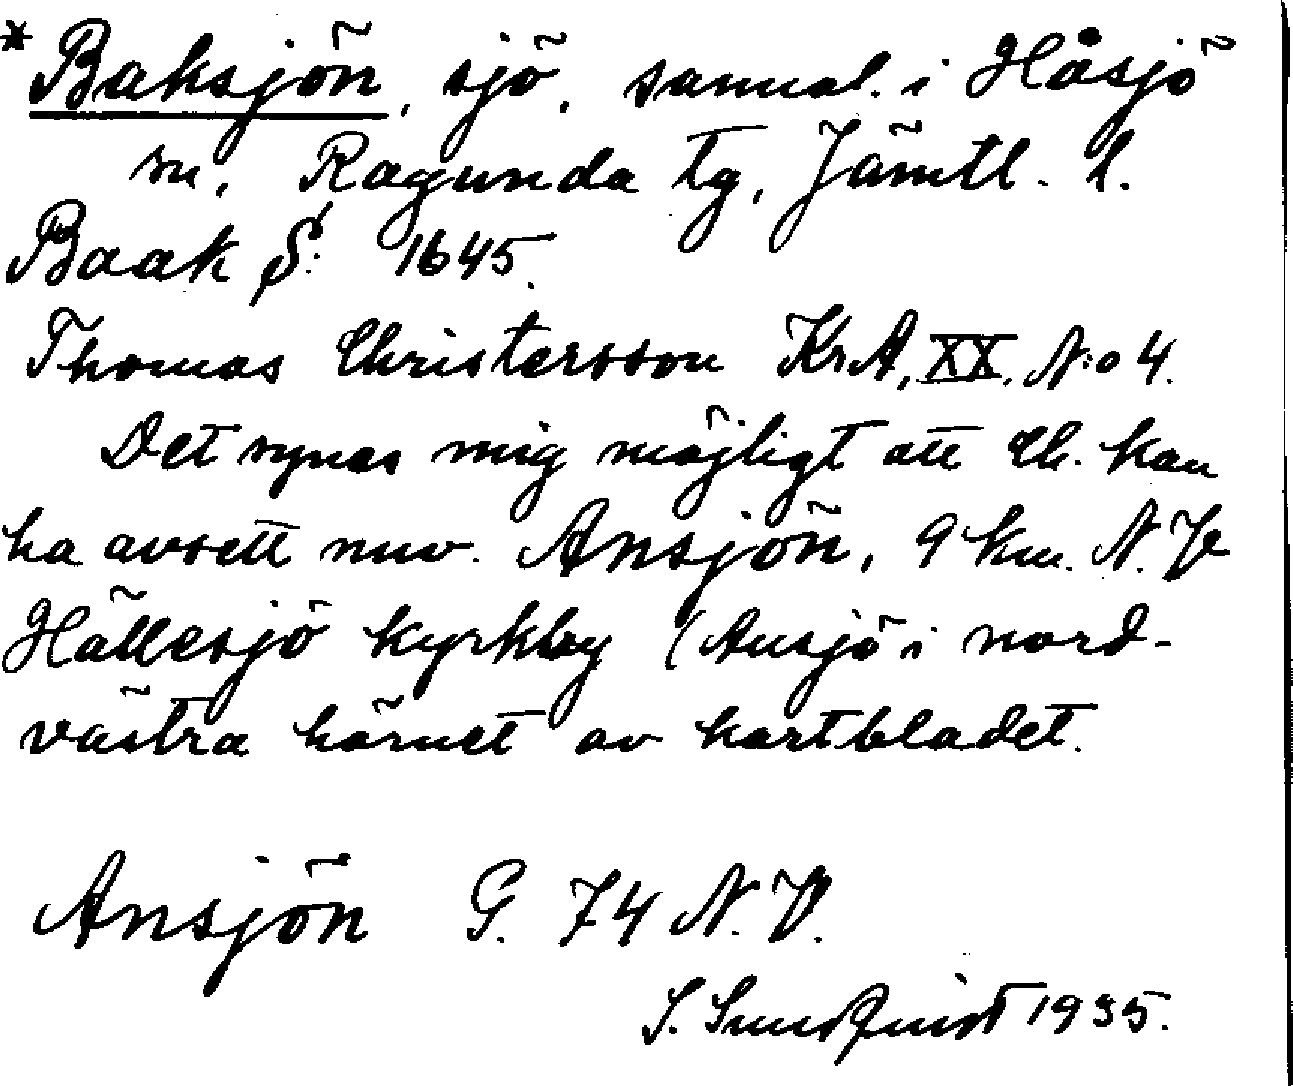 *Baksjön, sjö, samal. i Håsjö
sn, Ragunda tg, Jämtl. l.
Baak S: 1645.
Thomas Christersson KrA, XX, N:o 4.
Det synes mig möjligt att Ch. kan
ha avsett nuv. Ansjön, 9 km. N.V
Hällesjö kyrkby (Ansjö i nord-
västra hörnet av kartbladet.
Ansjön G. 74 N.V.
S. Sundquist 1935.